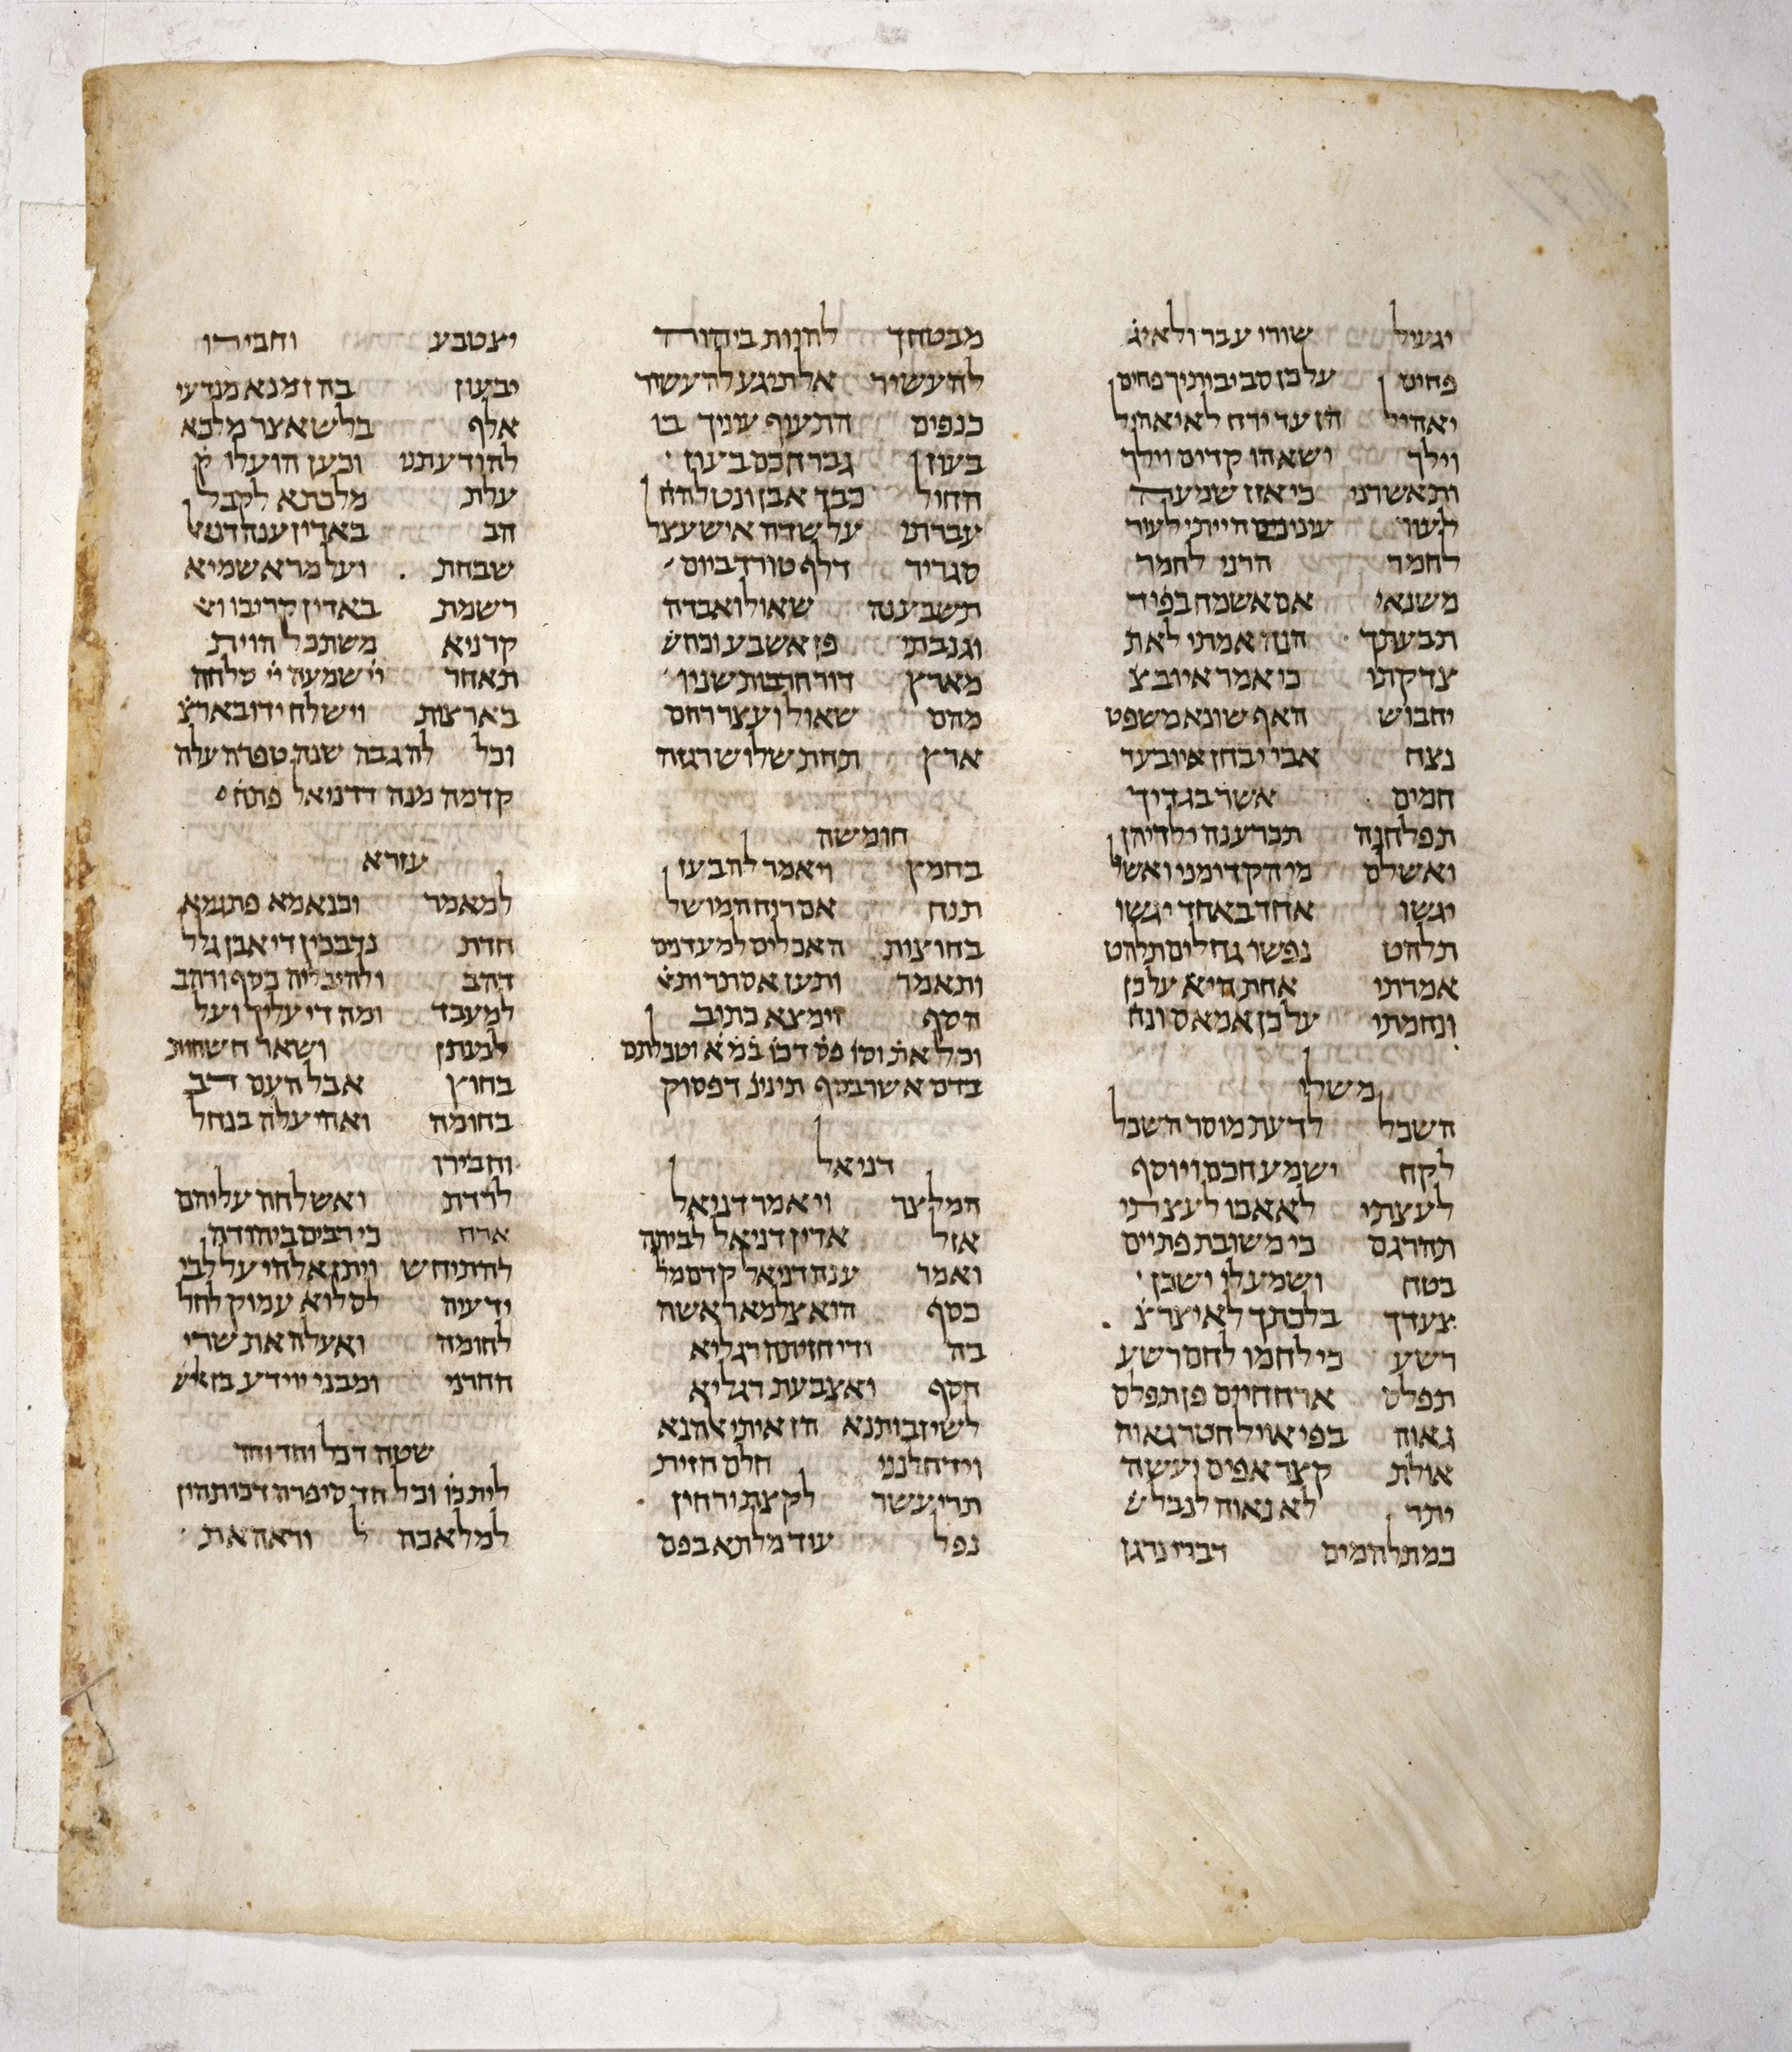 יגעיל שורו עבר ולא יג
פחים על כן סביבותיך פחים
יאהיל הן עד ירח לא יאהיל
וילך ישאהו קדים וילך
ותאשרני כי אזן שמעה
לעור עינים הייתי לעור
לחמר הרני לחמר
משנאי אם אשמח בפיד
תבעתך הנה אמתי לא ת
צדקתי כי אמר איוב צ
יחבוש האף שונא משפט
נצח אבי יבחן איוב עד
חמים אשר בגדיך
תפלחנה תכרענה ילדיהן
ואשלם מי הקדימני ואשל
יגשו אחד באחד יגשו
תלהט נפשו גחלים תלהט
אמרתי אחת היא על כן
ונחמתי על כן אמאס ונח
משלי
השכל לדעת מוסר השכל
לקח ישמע חכם ויוסף
לעצתי לא אבו לעצתי
תהרגם כי משובת פתיים
בטח ושמע לי ישכן
צעדך בלכתך לא יצר צ
רשע כי לחמו לחם רשע
תפלס ארח חיים פן תפלס
גאוה בפי אויל חטר גאוה
אולת קצר אפים יעשה
יתר לא נאוה לנבל ש
כמתלהמים דברי נרגן
מבטחך להיות ביהוה
להעשיר אל תיגע להעשיר
כנפים התעיף עיניך בו
בעוז גבר חכם בעוז
החול כבד אבן ונטל הח
עברתי על שדה איש עצל
סגריר דלף טורד ביום
תשבענה שאול ואבדה
וגנבתי פן אשבע וכחש
מארץ דור חרבות שניו
מהם שאול ועצר רחם
ארץ תחת שלוש רגזה
חומשה
בחמץ ויאמר לה בעז
תנח אם רוח המושל
בחוצות האכלים למעדנים
ותאמר ותען אסתר ותא
הסף וימצא כתוב
וכל את וסו פס דכו במא וטבלתם
בדם אשר בסף תינינ דפסוק
דניאל
המלצר ויאמר דניאל
אזל אדין דניאל לביתה
ואמר ענה דניאל קדם מל
כסף הוא צלמא ראשה
בה ודי חזיתה רגליא
חסף ואצבעת רגליא
לשיזבותנא הן איתי אלהנא
וידחלנני חלם חזית
תרי עשר לקצת ירחין
נפל עוד מלתא בפם
יצטבע וחבירו
יבעון בה זמנא מנדעי
אלף בלשאצר מלכא
להודעתני וכען העלו ק
עלת מלכתא לקבל
הב באדין ענה דניא
שבחת ועל מרא שמיא
רשמת באדין קריבו וא
קרניא משתכל הוית
תאחר יי שמעה יי סלחה
בארצות וישלח ידו בארצ
וכל להגבה שנה טפרה עלה
קדמה מנה דדניאל פתח
עזרא
למאמר וכנאמא פתגמא
חדת נדבכין די אבן גלל
דהב ולהיבליה כסף ודהב
למעבד ומה די עליך ועל
לכעתן ושאר חשחות
בחוץ אבל העם רב
בחומה ואהי עלה בנחל
וחבירו
לרדת ואשלחה עליהם
ארח כי רבים ביהודה
להתיחש ויתן אלהי על לבי
ידעיה לסלוא עמוק לחל
לחומה ואעלה את שרי
החרני ומבני יוידע בן אלש
שטה דכל וחד וחד
לית כו וכל חד סיפרה דכותהון
למלאכה ל וראה את